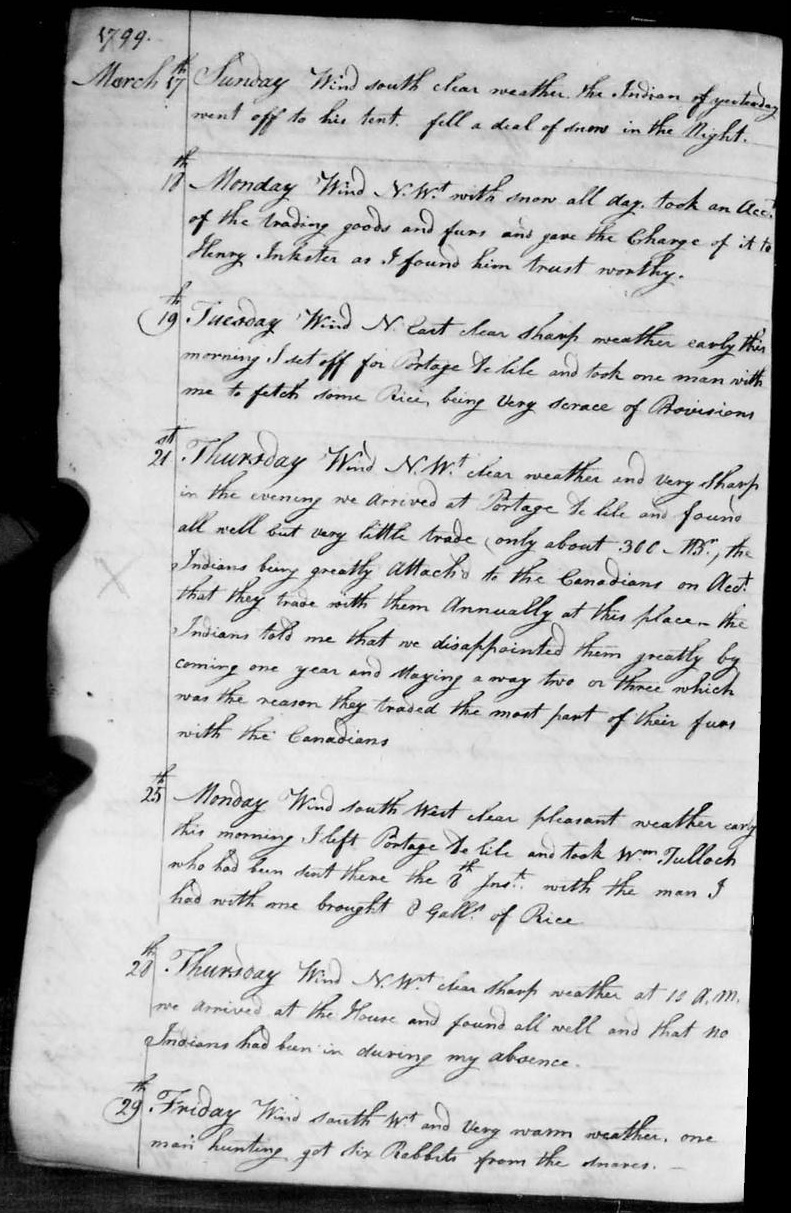 1799.
March 17th Sunday Wind south clear weather. the Indian of yesterday
went off to his tent. fell a deal of snow in the Night.
18th Monday Wind N.Wt with snow all day. took an Acct
of the trading goods and furs and gave the Charge of it to
Henry Inkster as I found him trust worthy.
19th Tuesday Wind N. East clear sharp weather early this
morning I set off for Portage De lile and took one man with
me to fetch some Rice, being Very scrace of Provisions
21st Thursday Wind N.Wt clear weather and very sharp
in the evening we arrived at Portage De lile and found
all well but very little trade, only about 300 MBr, the
Indians being greatly Attach'd to the Canadians on Acct
that they trade with them Annually at this place – the
Indians told me that we disappointed them greatly by
coming one year and staying a way two or three which
was the reason they traded the most part of their furs
with the Canadians
25th Monday Wind south West clear pleasant weather early
this morning I left Portage De lile and took Wm Tulloch
who had been sent there the 8th Inst. with the man I
had with me brought 8 Galls of Rice
28th Thursday Wind N.Wt clear sharp weather at 10 A.M.
we arrived at the House and found all well and that no
Indians had been in during my absence.
29th Friday Wind south Wt and Very warm weather. one
man hunting got six Rabbits from the snares. –